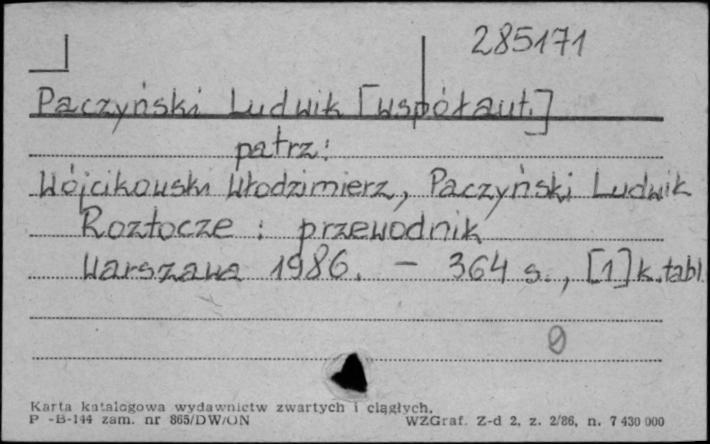 285171
Paczyński Ludwik [współaut.]
patrz:
Wójcikowski Włodzimierz, Paczyński Ludwik
Roztocze : przewodnik
Warszawa 1986. – 364 s., [1] k. tabl.
0
Karta katalogowa wydawnictw zwartych i ciągłych.
P -B-144 zam. nr 865/DW/ON WZGraf. Z-d 2, z. 2/86, n. 7 430 000